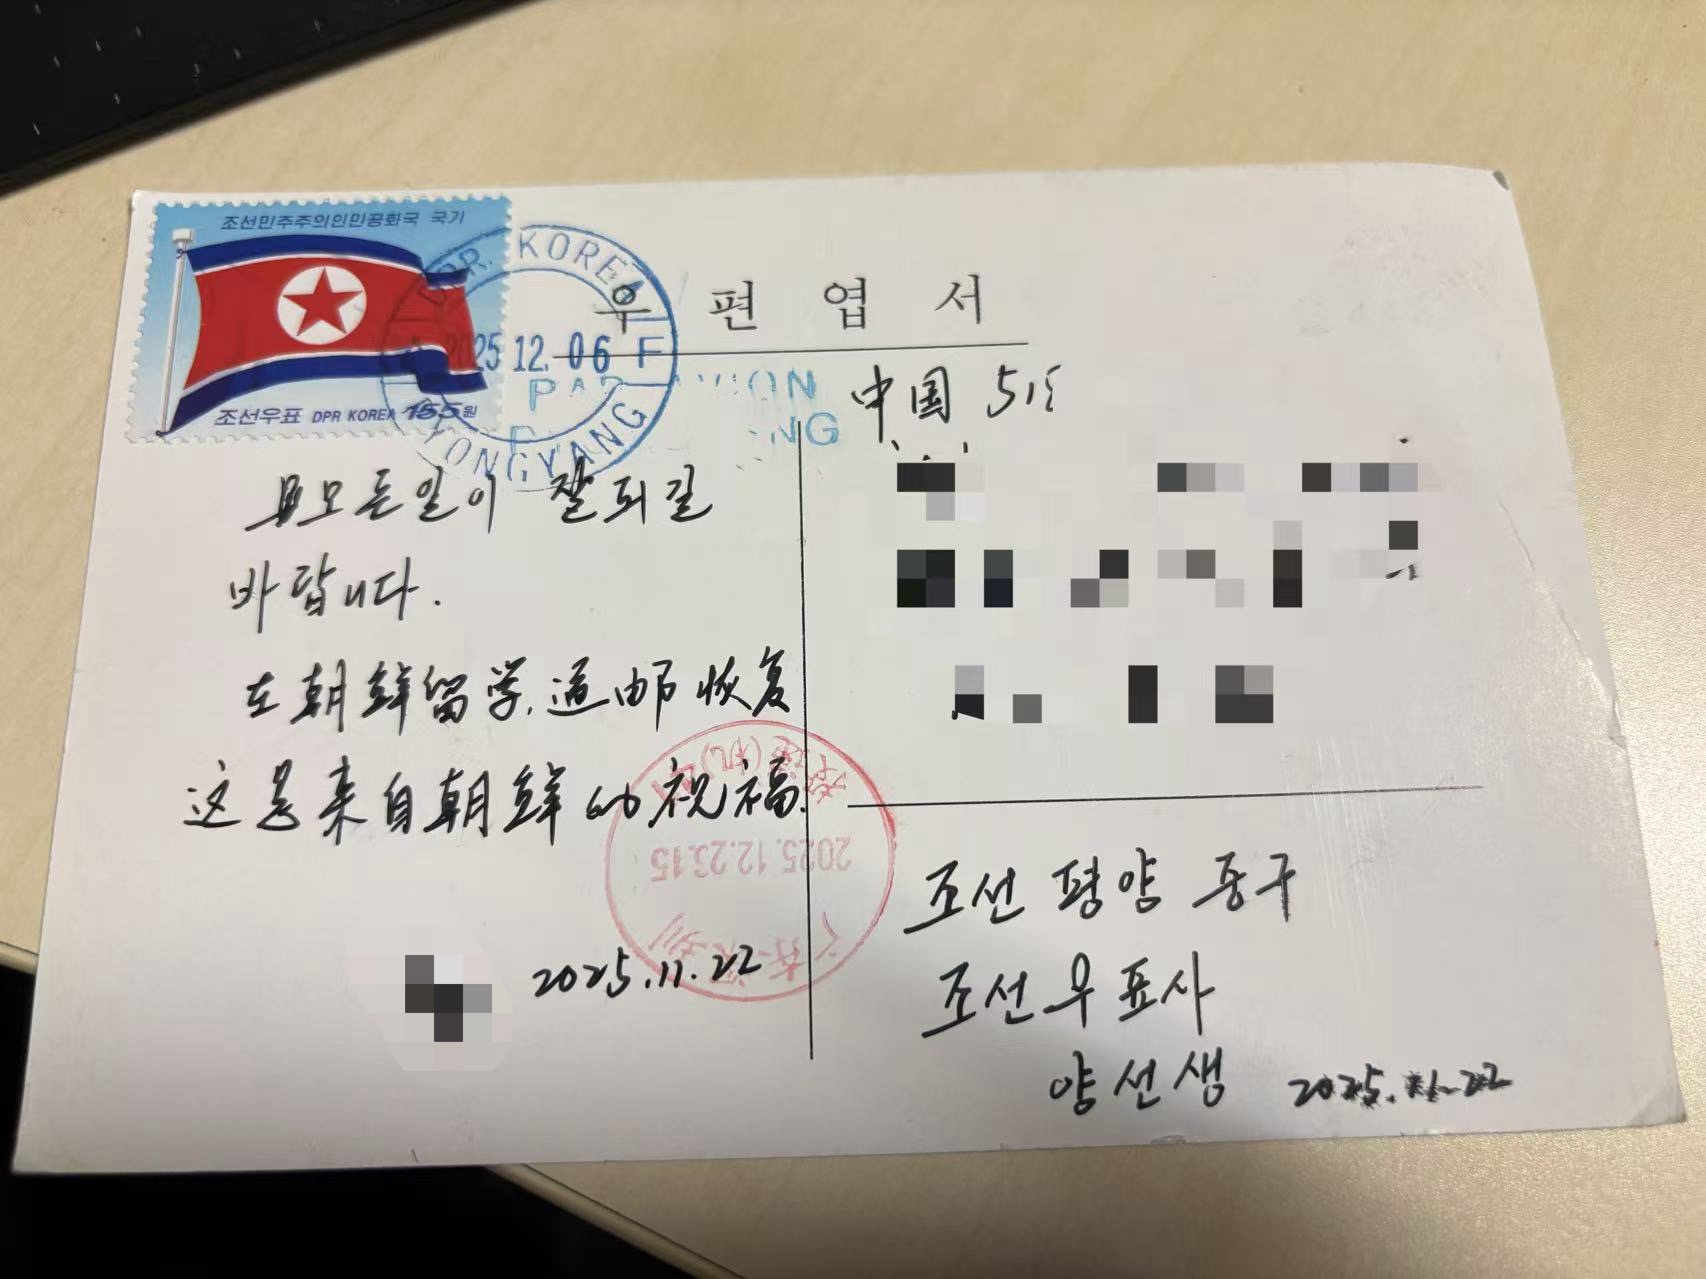 조선민주주의인민공화국 국기
조선우표 DPR KOREA 155원
DPR. KOREA
2025 12. 06 F
PYONGYANG
PAR ON
NG
우편엽서
中国 51
모든일이 잘되길
바랍니다.
在朝鲜留学,通邮恢复
这是来自朝鲜的祝福.
2025.11.22
2025.12.23.15
投递(机
조선 평양 중구
조선우표사
양선생 2025.11.22